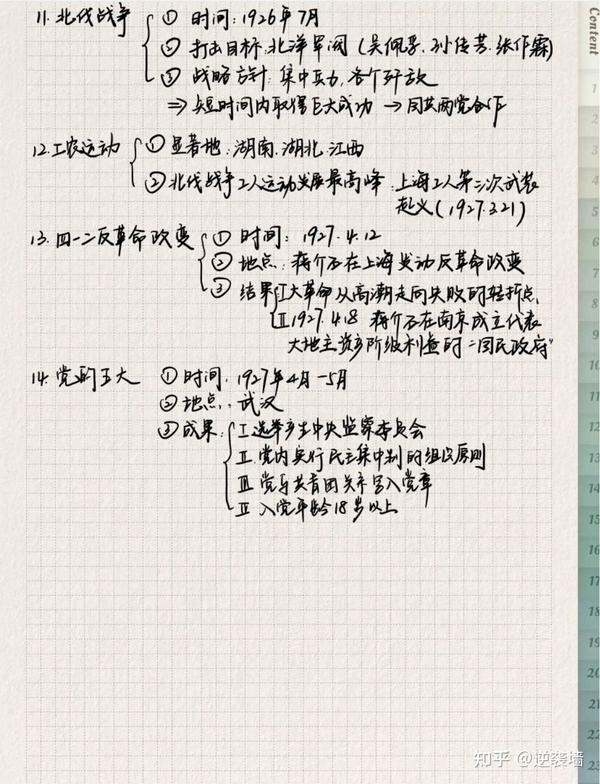 11. 北伐战争
① 时间：1926年7月
② 打击目标：北洋军阀（吴佩孚、孙传芳、张作霖）
③ 战略方针：集中兵力，各个歼敌
⇒ 短时间内取得巨大成功 → 国共两党合作
12. 工农运动
① 显著地：湖南、湖北、江西
② 北伐战争工人运动发展最高峰：上海工人第三次武装
起义（1927.3.21）
13. 四一二反革命政变
① 时间：1927.4.12
② 地点：蒋介石在上海发动反革命政变
③ 结果 I 大革命从高潮走向失败的转折点
II 1927.4.18 蒋介石在南京成立代表
大地主资产阶级利益的“国民政府”
14. 党的五大
① 时间：1927年4月-5月
② 地点：武汉
③ 成果：I 选举产生中央监察委员会
II. 党内实行民主集中制的组织原则
III 党与共青团关系写入党章
IV 入党年龄18岁以上
Content
1
2
3
4
5
6
7
8
9
10
11
12
13
14
15
16
17
18
19
20
21
22
23
知乎 @逆袭墙